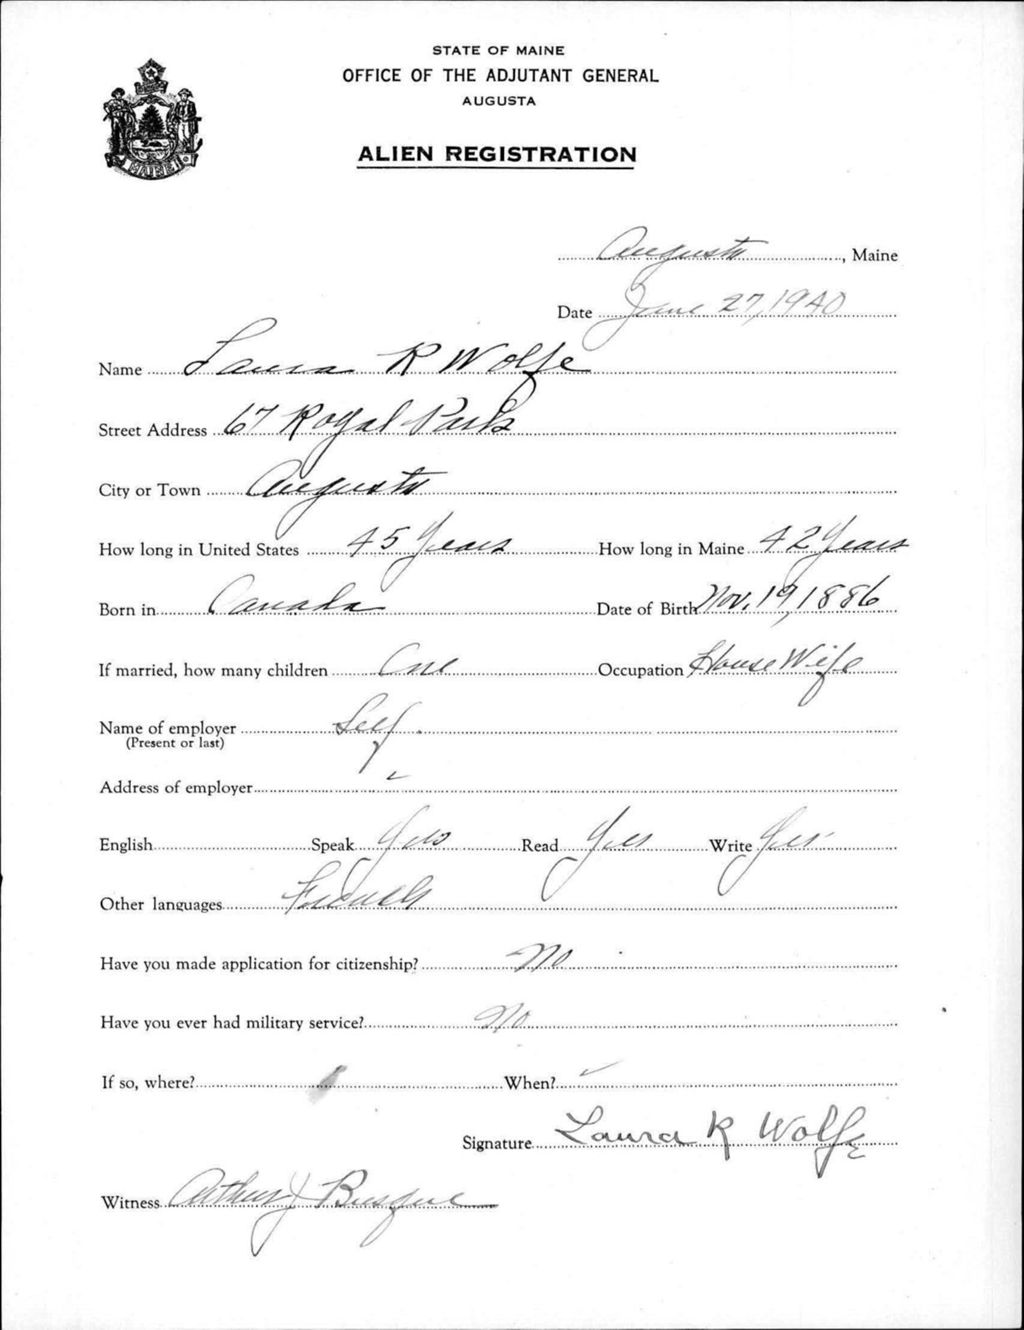 STATE OF MAINE
OFFICE OF THE ADJUTANT GENERAL
AUGUSTA
ALIEN REGISTRATION
Augusta, Maine
Date June 27, 1940
Name Laura R Wolfe
Street Address 67 Royal Park
City or Town Augusta
How long in United States 45 Years How long in Maine 42 Years
Born in Canada Date of Birth Nov. 19, 1886
If married, how many children One Occupation House Wife
Name of employer Self.
(Present or last)
Address of employer
English Speak Yes Read Yes Write Yes
Other languages French
Have you made application for citizenship? No
Have you ever had military service? No
If so, where? When?
Signature Laura R Wolfe
Witness Arthur J